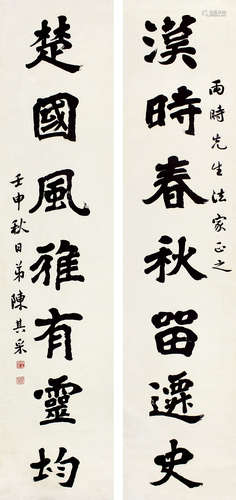 雨時先生法家正之
漢時春秋留遷史
楚國風雅有靈均
壬申秋日弟陳其采